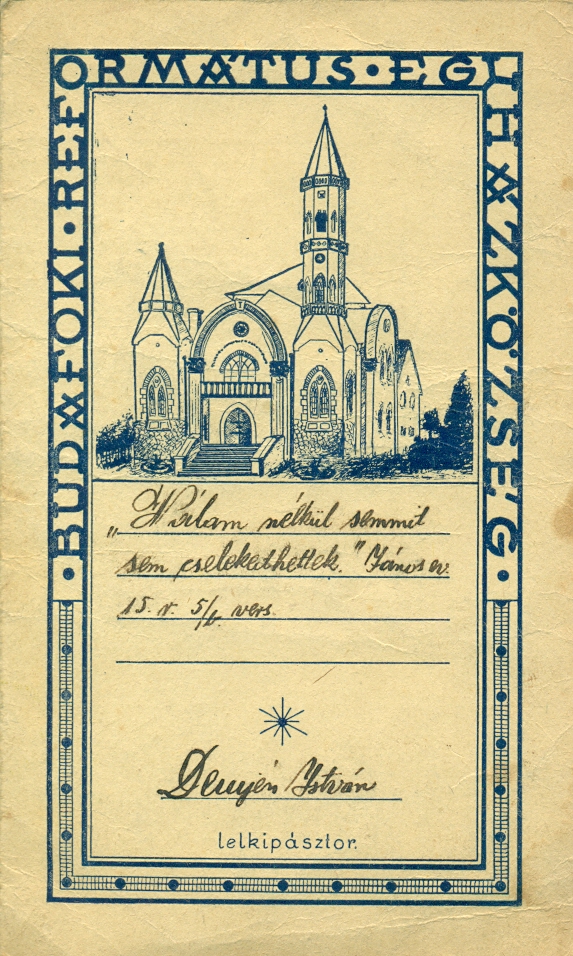 BUDAFOKI · REFORMÁTUS · EGYHÁZKÖZSÉG ·
„Nálam nélkül semmit
sem cselekedhettek." János ev.
15. r. 5/b. vers.
István
lelkipásztor.